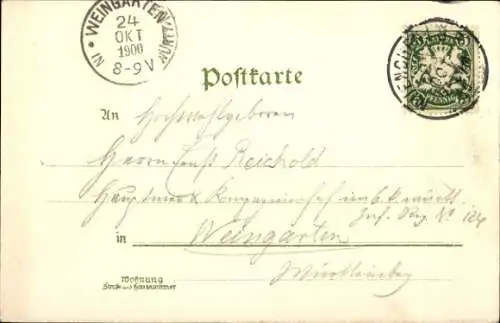 IN * WEINGARTEN (WÜRTT)
24
OKT
1900
8-9V
5 PFENNIG
MÜNCHEN
Postkarte
An Hochwohlgeboren
Herrn Ernst Reichold
Hauptmann & Kompagniechef im 6. k. württb.
Inf. Reg. No 124
in Weingarten
Württemberg
Wohnung
Straße und Hausnummer